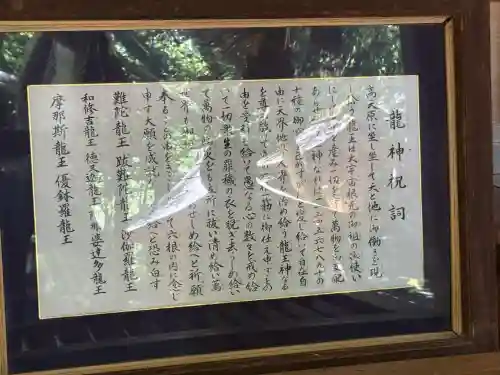 龍神祝詞
高天原に坐し坐して天と地に御働きを現
し給う龍王は大宇宙根元の御祖の御使い
にして一切を産み一切を育て萬物を御支配
あらせ給う王神なれば一二三四五六七八九十の
十種の御寶を己がすがたと変じ給いて自在自
由に天界地界人界を治め給う龍王神なる
を尊み敬いて眞の六根一筋に御仕え申すこと
の由を受引き給いて愚なる心の数々を戒め給
いて一切衆生の罪穢の衣を脱ぎ去らしめ給い
て萬物の病災をも立所に祓い清め給い萬
世界も御祖のもとに治めせしめ給へと祈願
奉ることの由をきこしめして六根の内に念じ
申す大願を成就なさしめ給へと恐み白す
難陀龍王 跋難陀龍王 沙伽羅龍王
和修吉龍王 徳叉迦龍王 阿那婆達多龍王
摩那斯龍王 優鉢羅龍王